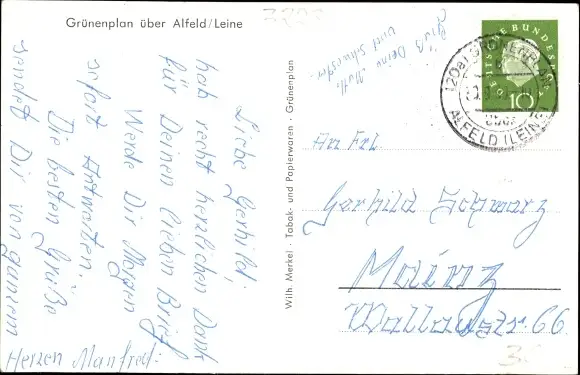 Grünenplan über Alfeld/Leine
Liebe Gerhild,
hab recht herzlichen Dank
für Deinen lieben Brief
Werde Dir Morgen
sofort Antworten.
Die besten Grüße
sendet Dir von ganzem
Herzen Manfred.
Grüß Deine Mutti
und Schwester
Wilh. Merkel · Tabak- und Papierwaren · Grünenplan
DEUTSCHE BUNDESPOST
10
(20a) GRÜNENPLAN
ALFELD (LEINE)
An Frl.
Gerhild Schwarz
Mainz
Wallaustr. 66